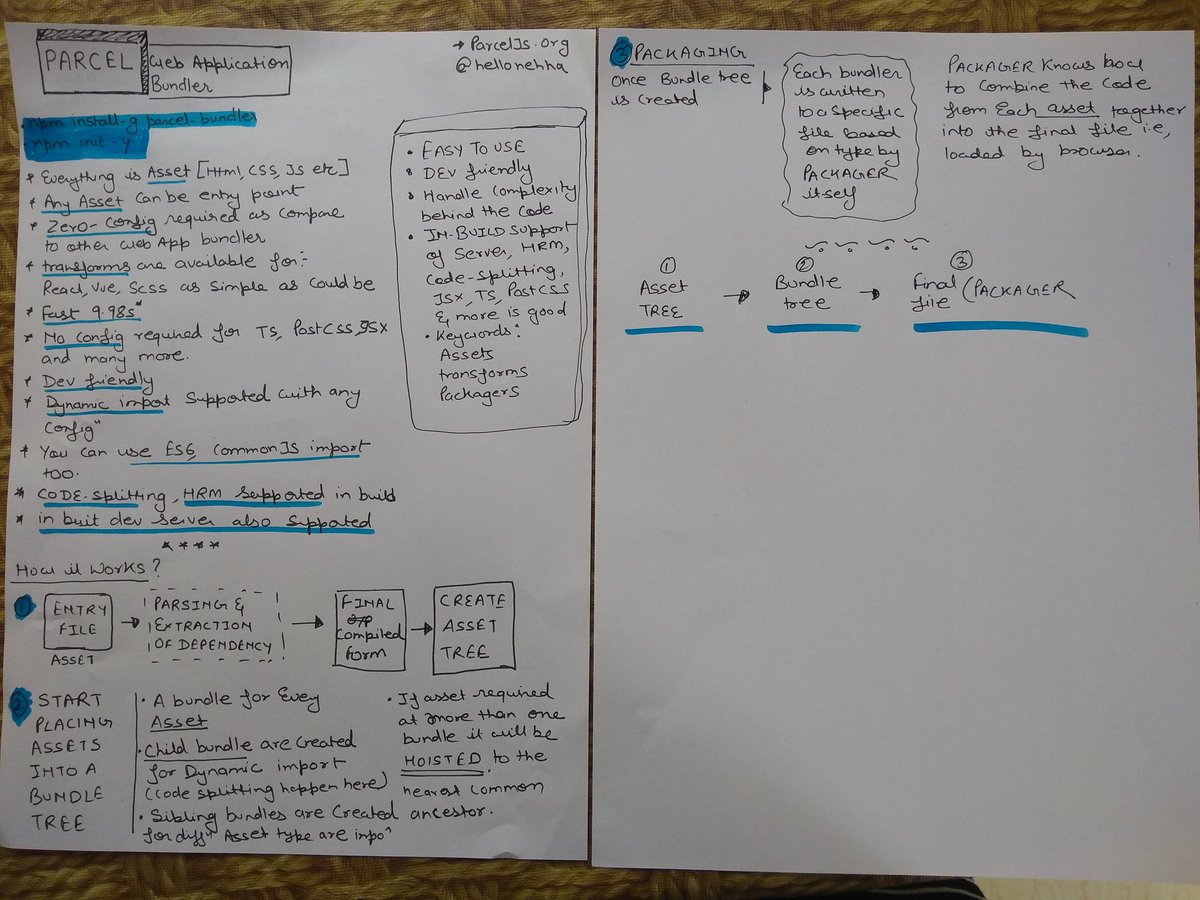 PARCEL
Web Application
Bundler
→ ParcelJs.Org
@hellonehha
• npm install -g parcel-bundler
• npm init -y
* Everything is Asset [Html, CSS, JS etc]
* Any Asset can be entry point
* Zero-Config required as compare
to other web App bundler
* transforms are available for:-
React, Vue, Scss as simple as could be
* Fast 9.98s"
* No config required for TS, PostCSS, JSX
and many more.
* Dev friendly
* Dynamic import supported with any
Config"
* You can use ES6, CommonJS import
too.
* CODE-splitting, HRM supported in build
* in buit dev server also supported
* * * *
• EASY TO USE
• DEV friendly
• Handle complexity
behind the code
• IN-BUILD support
of Server, HRM,
Code-splitting,
JSX, TS, PostCSS
& more is good
• Keywords:
Assets
transforms
Packagers
How it works?
① ENTRY
FILE
ASSET
→ PARSING &
EXTRACTION
OF DEPENDENCY
→ FINAL
Compiled
form
→ CREATE
ASSET
TREE
② START
PLACING
ASSETS
INTO A
BUNDLE
TREE
• A bundle for Every
Asset
• Child bundle are created
for Dynamic import
(Code splitting happen here)
• Sibling bundles are created
for diff" Asset type are impo^
• If asset required
at more than one
bundle it will be
HOISTED to the
nearest common
ancestor.
③ PACKAGING
Once Bundle tree
is created
Each bundler
is written
to a specific
file based
on type by
PACKAGER
itself
PACKAGER Knows how
to combine the code
from Each asset together
into the final file i.e,
loaded by browser.
①
Asset
TREE
→ ②
Bundle
tree
→ ③
Final
file (PACKAGER